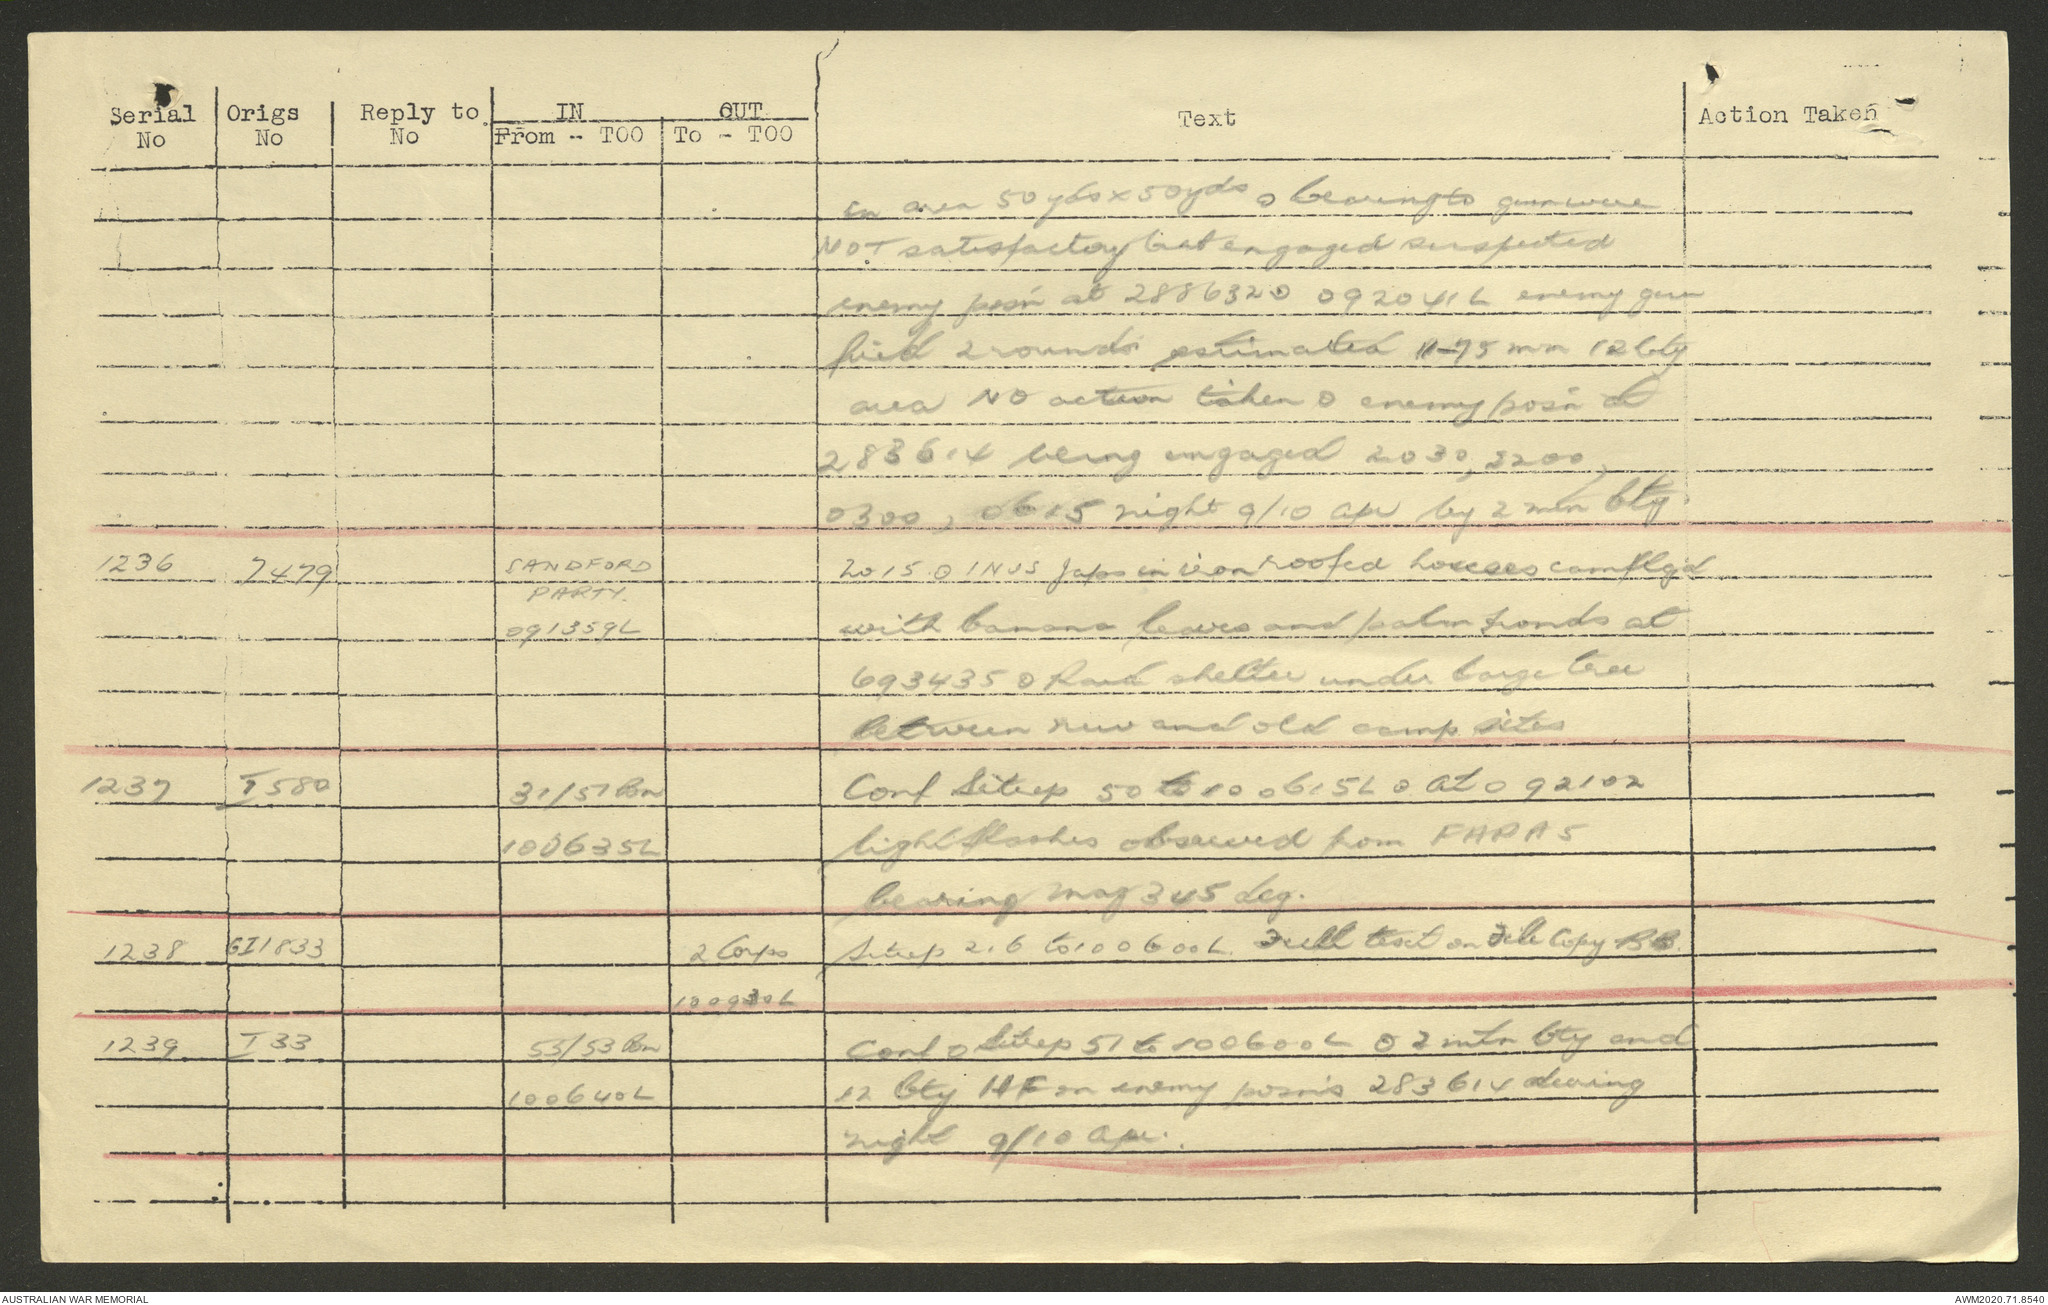 Serial No | Origs No | Reply to No. | IN From - TOO | OUT To - TOO | Text | Action Taken
in area 50yds x 50yds o bearing to gun were
NOT satisfactory but engaged suspected
enemy posn at 2886320 092041L enemy gun
fired 2 rounds estimated 75 mm 12 bty
area NO action taken o enemy posn at
283614 being engaged 2030, 2200,
0300, 0615 night 9/10 Apr by 2 mtn bty.
1236 | 7479 | SANDFORD | 2015 o Japs in iron roofed houses camflgd
PARTY.
091359L | with banana leaves and palm fronds at
693435 o Raid shelter under large tree
between new and old camp sites
1237 | I 580 | 31/51 Bn | Conf Sitrep 50 to 100615L o At 092102
100635L | light flashes observed from
bearing mag 345 deg.
1238 | GI1833 | 2 Corps | Sitrep 216 to 100600L. Full text on File Copy
100930L
1239 | I 33 | 53/53 Bn | Conf o Sitrep 51 to 100600L o 2 mtn bty and
100640L | 12 bty HF on enemy posns 283614 during
night 9/10 Apr.
AUSTRALIAN WAR MEMORIAL | AWM2020.71.8540